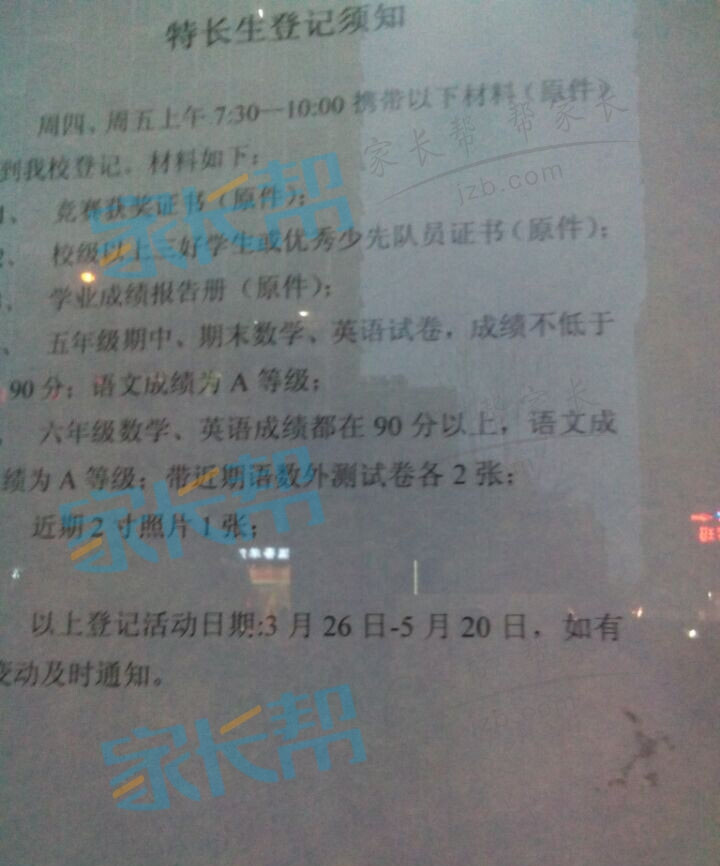 特长生登记须知
周四、周五上午 7:30—10:00 携带以下材料（原件）
到我校登记。材料如下：
、 竞赛获奖证书（原件）；
、 校级以上三好学生或优秀少先队员证书（原件）；
、 学业成绩报告册（原件）；
、 五年级期中、期末数学、英语试卷，成绩不低于
90 分；语文成绩为 A 等级；
、 六年级数学、英语成绩都在 90 分以上，语文成
绩为 A 等级；带近期语数外测试卷各 2 张；
近期 2 寸照片 1 张；
以上登记活动日期:3 月 26 日-5 月 20 日，如有
变动及时通知。
家长帮 帮家长
jzb.com
家长帮
家长帮
家长帮